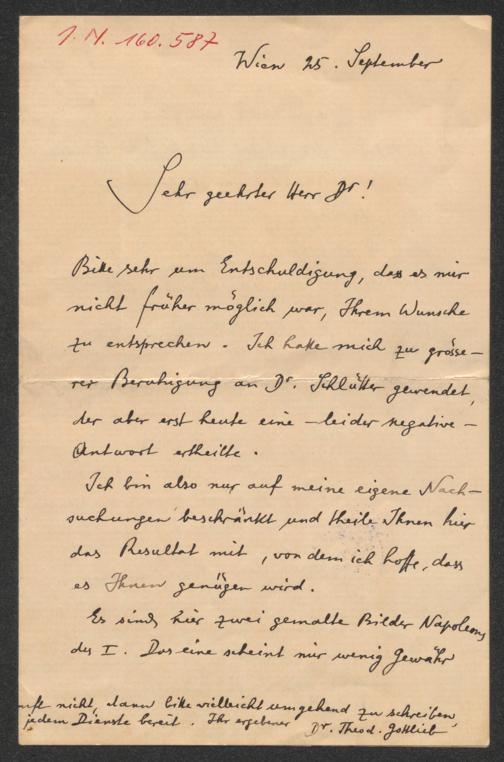 I. N. 160.587
Wien 25. September
Sehr geehrter Herr Dr!
Bitte sehr um Entschuldigung, dass es mir
nicht früher möglich war, Ihrem Wunsche
zu entsprechen. Ich hatte mich zu grösse-
rer Beruhigung an Dr. Schlütter gewendet,
der aber erst heute eine – leider negative –
Antwort ertheilte.
Ich bin also nur auf meine eigene Nach-
suchungen beschränkt und theile Ihnen hier
das Resultat mit, von dem ich hoffe, dass
es Ihnen genügen wird.
Es sind hier zwei gemalte Bilder Napoleons
des I. Das eine scheint mir wenig Gewähr
nicht, dann bitte vielleicht umgehend zu schreiben,
jedem Dienste bereit. Ihr ergebener Dr. Theod. Gottlieb